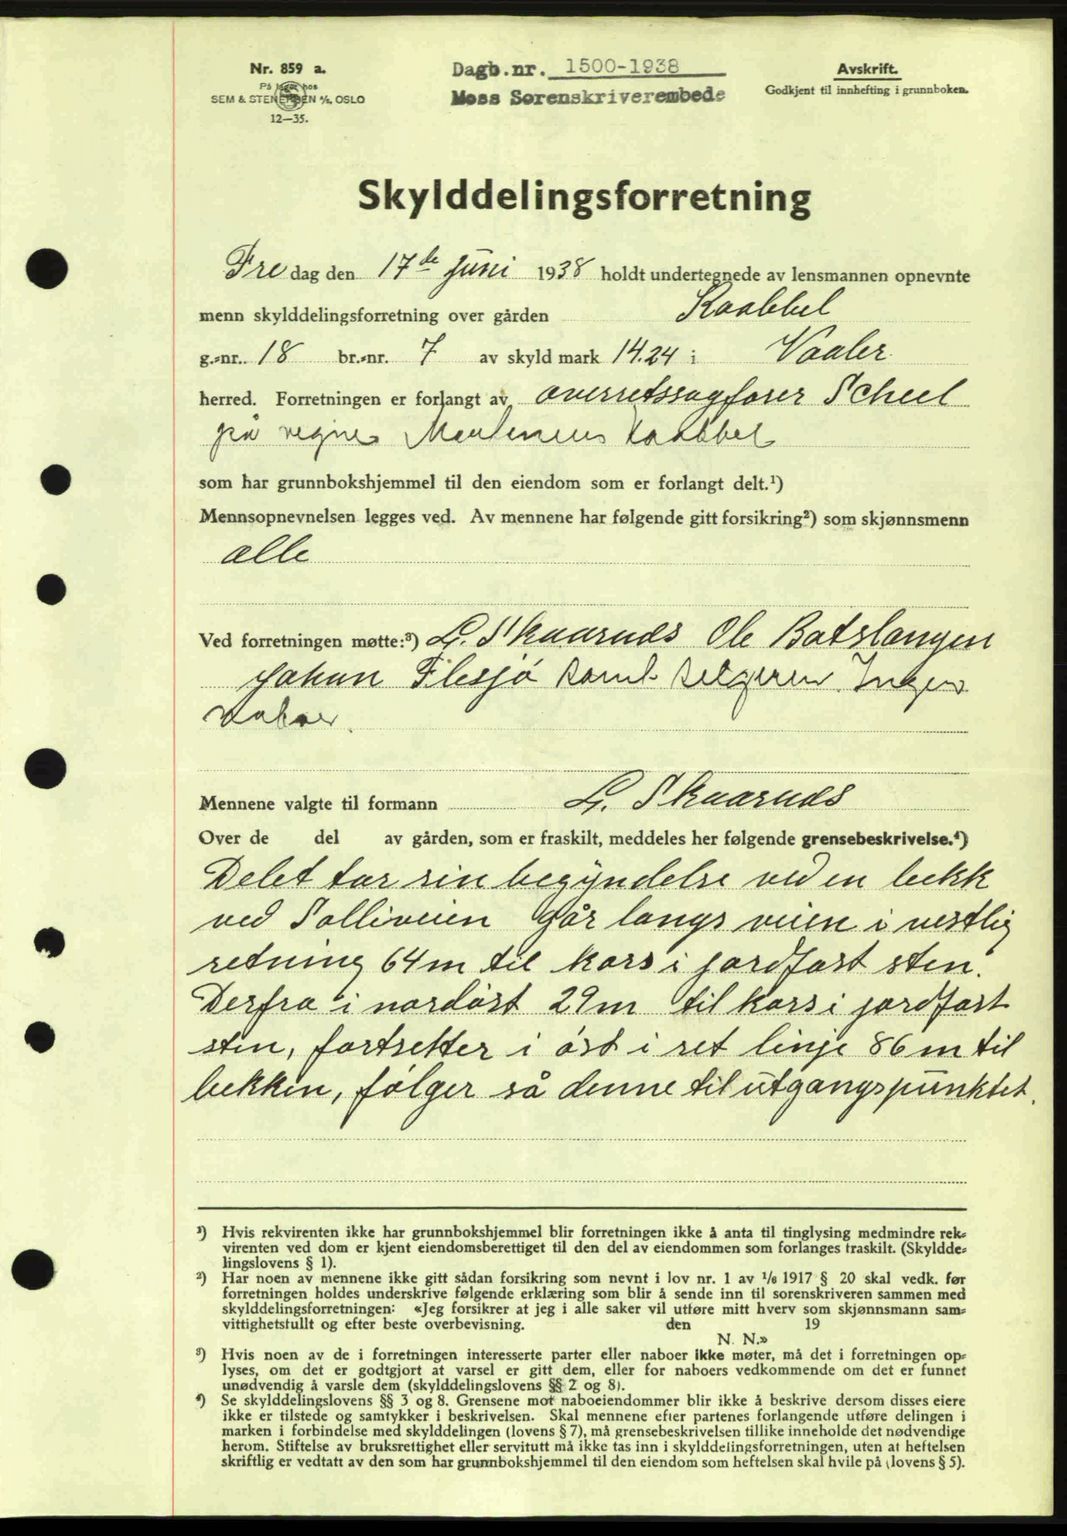 Nr. 859 a.
På lager hos
SEM & STENERSEN A/S, OSLO
12—35.
Dagb.nr. 1500-1938
Moss Sorenskriverembede
Avskrift.
Godkjent til innhefting i grunnboken.
Skylddelingsforretning
Fredag den 17de juni 1938 holdt undertegnede av lensmannen opnevnte
menn skylddelingsforretning over gården Kaabbel
g.=nr. 18 br.=nr. 7 av skyld mark 14.24 i Vaaler
herred. Forretningen er forlangt av overretssagfører Scheel
på vegne Kaabbel
som har grunnbokshjemmel til den eiendom som er forlangt delt.¹)
Mennsopnevnelsen legges ved. Av mennene har følgende gitt forsikring²) som skjønnsmenn
alle
Ved forretningen møtte:³) L. Skaaruds Ole Batslangen
Johan Flesjø samt selgeren. Ingen
naboer.
Mennene valgte til formann L. Skaaruds
Over de del av gården, som er fraskilt, meddeles her følgende grensebeskrivelse.⁴)
Delet tar sin begyndelse ved en bekk
ved Solliveien går langs veien i vestlig
retning 64 m til kors i jordfast sten.
Derfra i nordøst 29 m til kors i jordfast
sten, fortsetter i øst i ret linje 86 m til
bekken, følger så denne til utgangspunktet.
¹) Hvis rekvirenten ikke har grunnbokshjemmel blir forretningen ikke å anta til tinglysing medmindre rek=
virenten ved dom er kjent eiendomsberettiget til den del av eiendommen som forlanges fraskilt. (Skyldde=
lingslovens § 1).
²) Har noen av mennene ikke gitt sådan forsikring som nevnt i lov nr. 1 av 1/6 1917 § 20 skal vedk. før
forretningen holdes underskrive følgende erklæring som blir å sende inn til sorenskriveren sammen med
skylddelingsforretningen: «Jeg forsikrer at jeg i alle saker vil utføre mitt hverv som skjønnsmann sam=
vittighetsfullt og efter beste overbevisning. den 19
N. N.»
³) Hvis noen av de i forretningen interesserte parter eller naboer ikke møter, må det i forretningen op=
lyses, om det er godtgjort at varsel er gitt dem, eller for naboers vedkommende om det er funnet
unødvendig å varsle dem (skylddelingslovens §§ 2 og 8).
⁴) Se skylddelingslovens §§ 3 og 8. Grensene mot naboeiendommer blir ikke å beskrive dersom disses eiere
ikke er tilstede og samtykker i beskrivelsen. Skal mennene efter partenes forlangende utføre delingen i
marken i forbindelse med skylddelingen (lovens § 7), må grensebeskrivelsen tillike inneholde det nødvendige
herom. Stiftelse av bruksrettighet eller servitutt må ikke tas inn i skylddelingsforretningen, uten at heftelsen
skriftlig er vedtatt av den som har grunnbokshjemmel til den eiendom som heftelsen skal hvile på (lovens § 5).